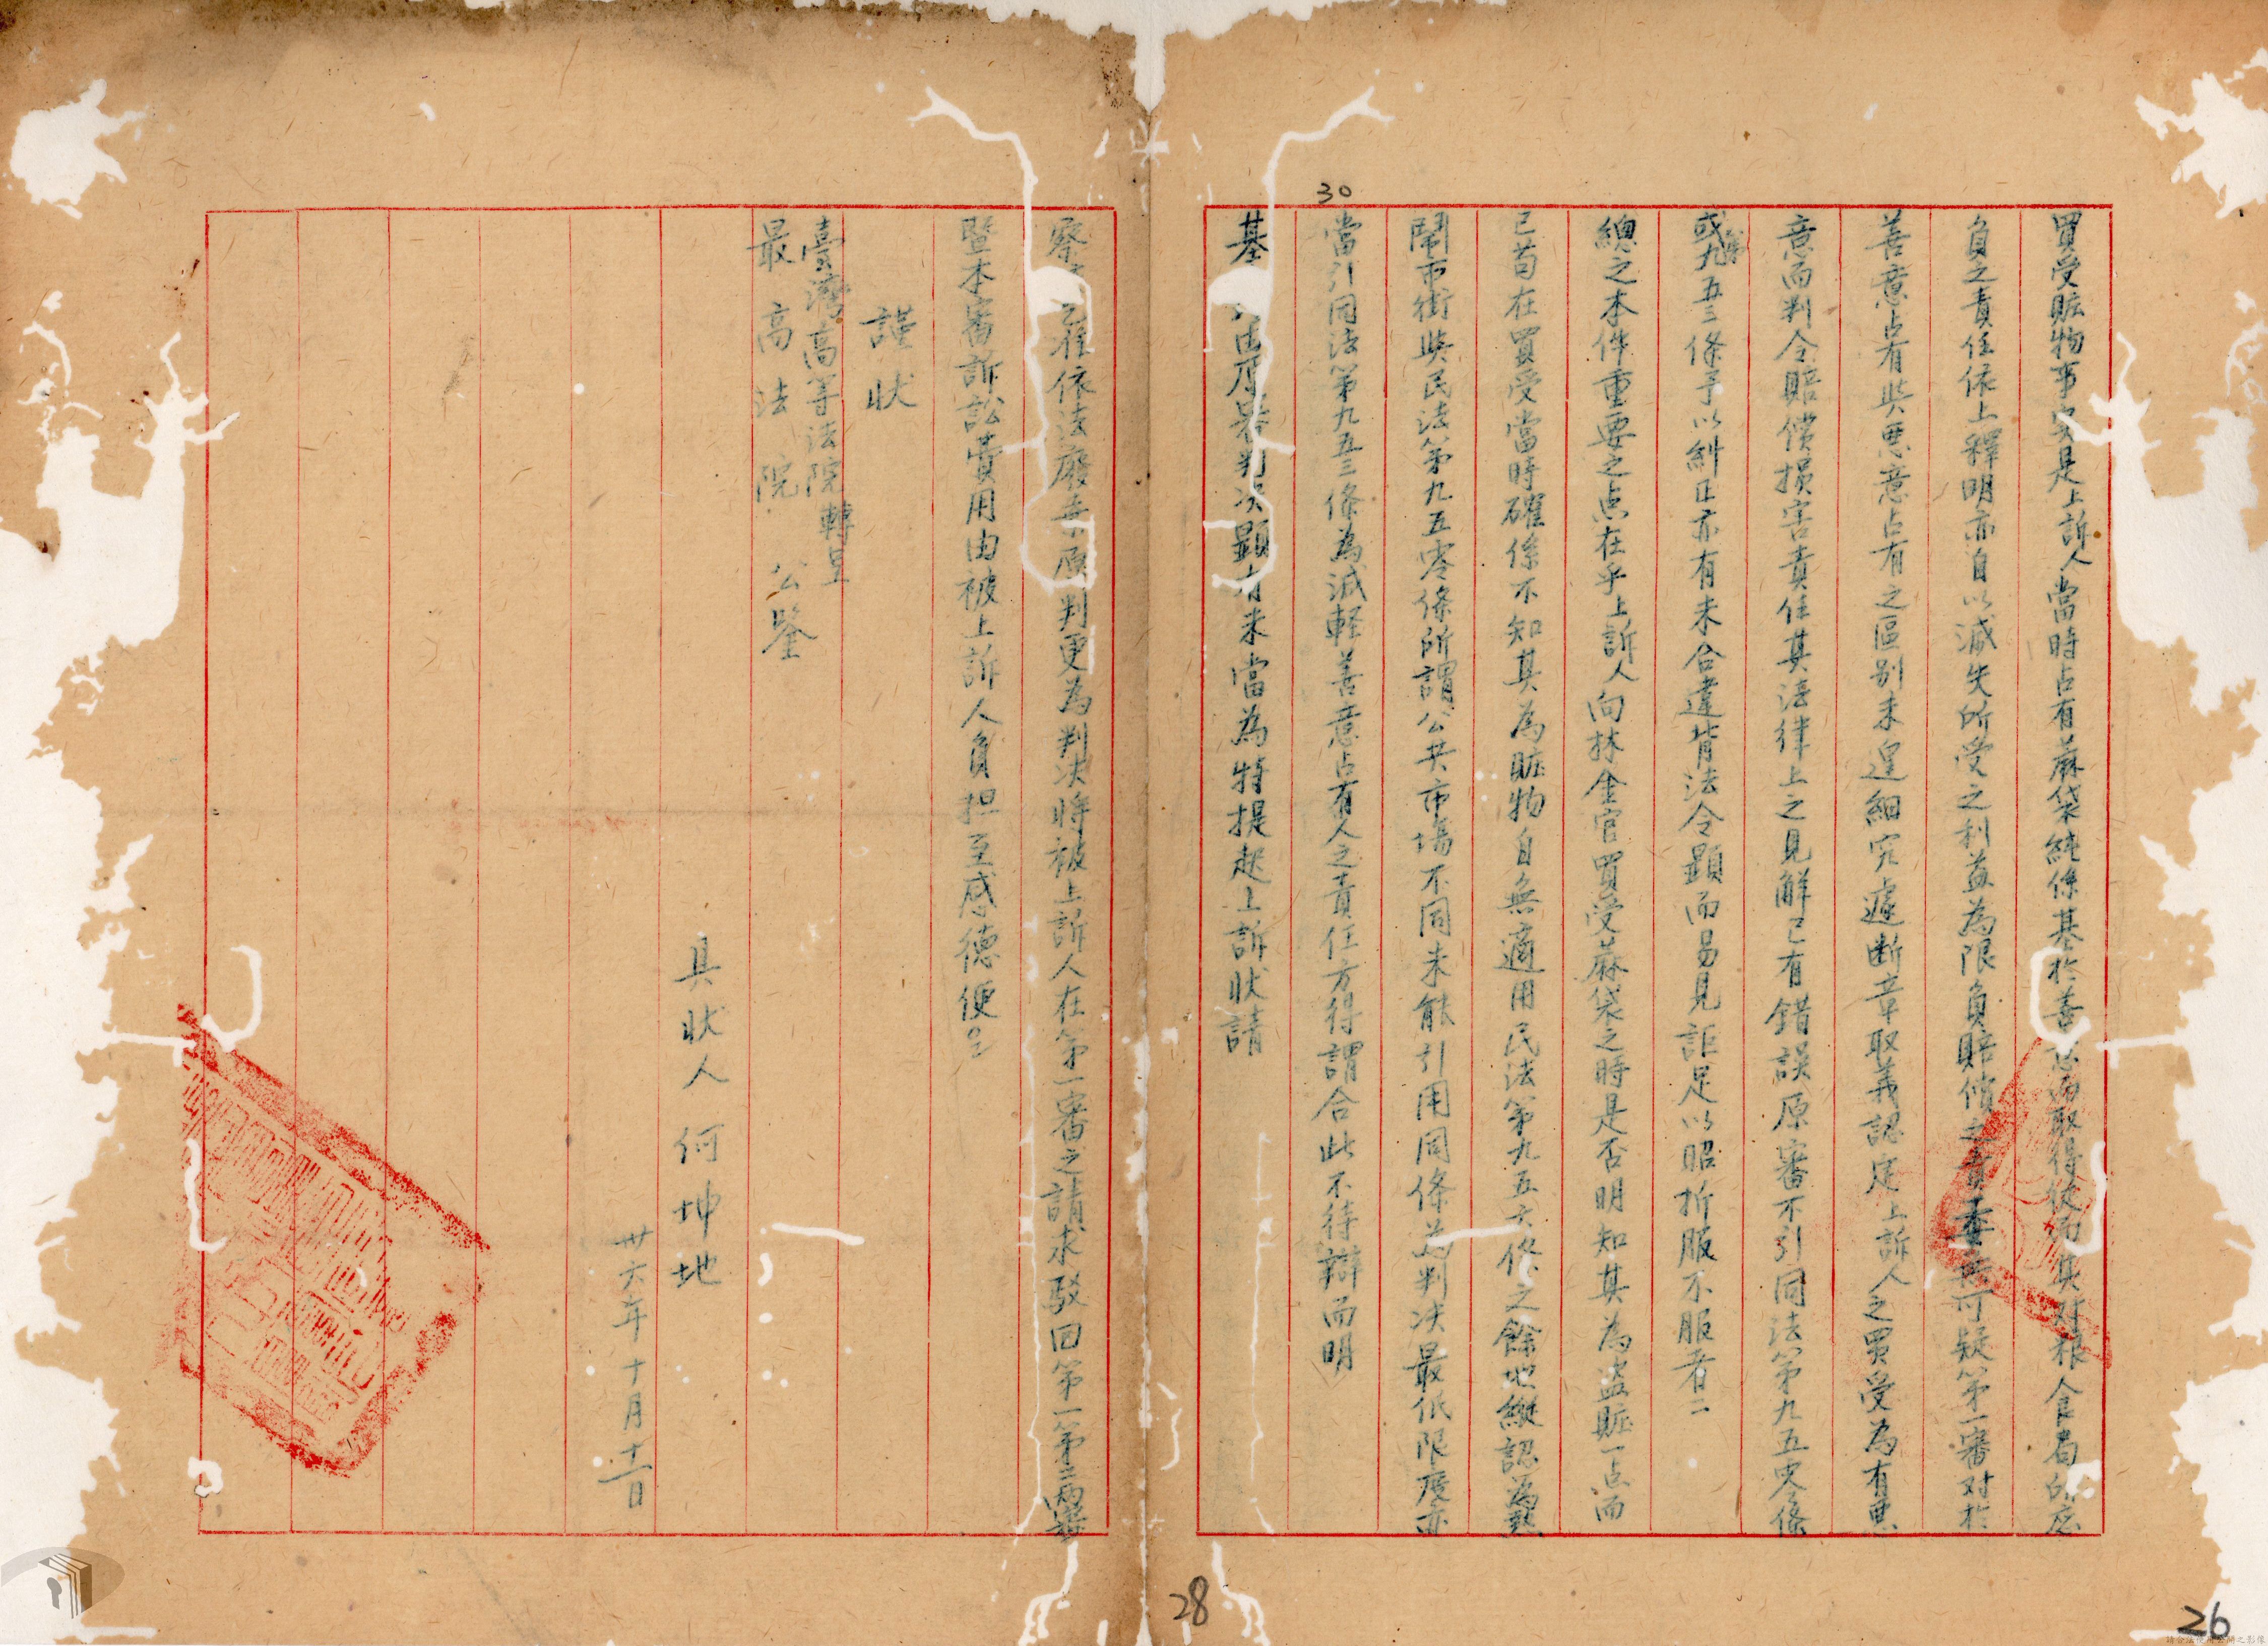 買受賍物事实是上訴人當時占有蔴袋純係基於善意而取得從而其对粮食局的应
負之責任依上釋明亦自以滅失所受之利益為限負賠償之責無可疑第一審对於
善意占有與悪意占有之區别未遑細究遽断章取義認定上訴人之買受為有悪
意而判令賠償損害責任其法律上之見解已有錯誤原審不引同法第九五六條
或第九五三條予以糾正亦有未合違背法令顕而易見詎足以昭折服不服者二
總之本件重要之点在乎上訴人向林金官買受蔴袋之時是否明知其為盗賍一点而
已苟在買受當時確係不知其為賍物自無適用民法第九五六條之餘地縱認為熱
鬧市街與民法第九五零條所謂公共市場不同未能引用同條為判决最低限度亦
當引同法第九五三條為減軽善意占有人之責任方得謂合此不待辯而明
基 由原審判决顕有未當為特提起上訴狀請
察 准依法廢棄原判更為判决将被上訴人在第一審之請求駁回第一第二兩審
暨本審訴訟費用由被上訴人負担至感德便
謹狀
臺灣高等法院轉呈
最高法院 公鑒
具狀人 何坤地
卅六年十月十一日
30
28
26